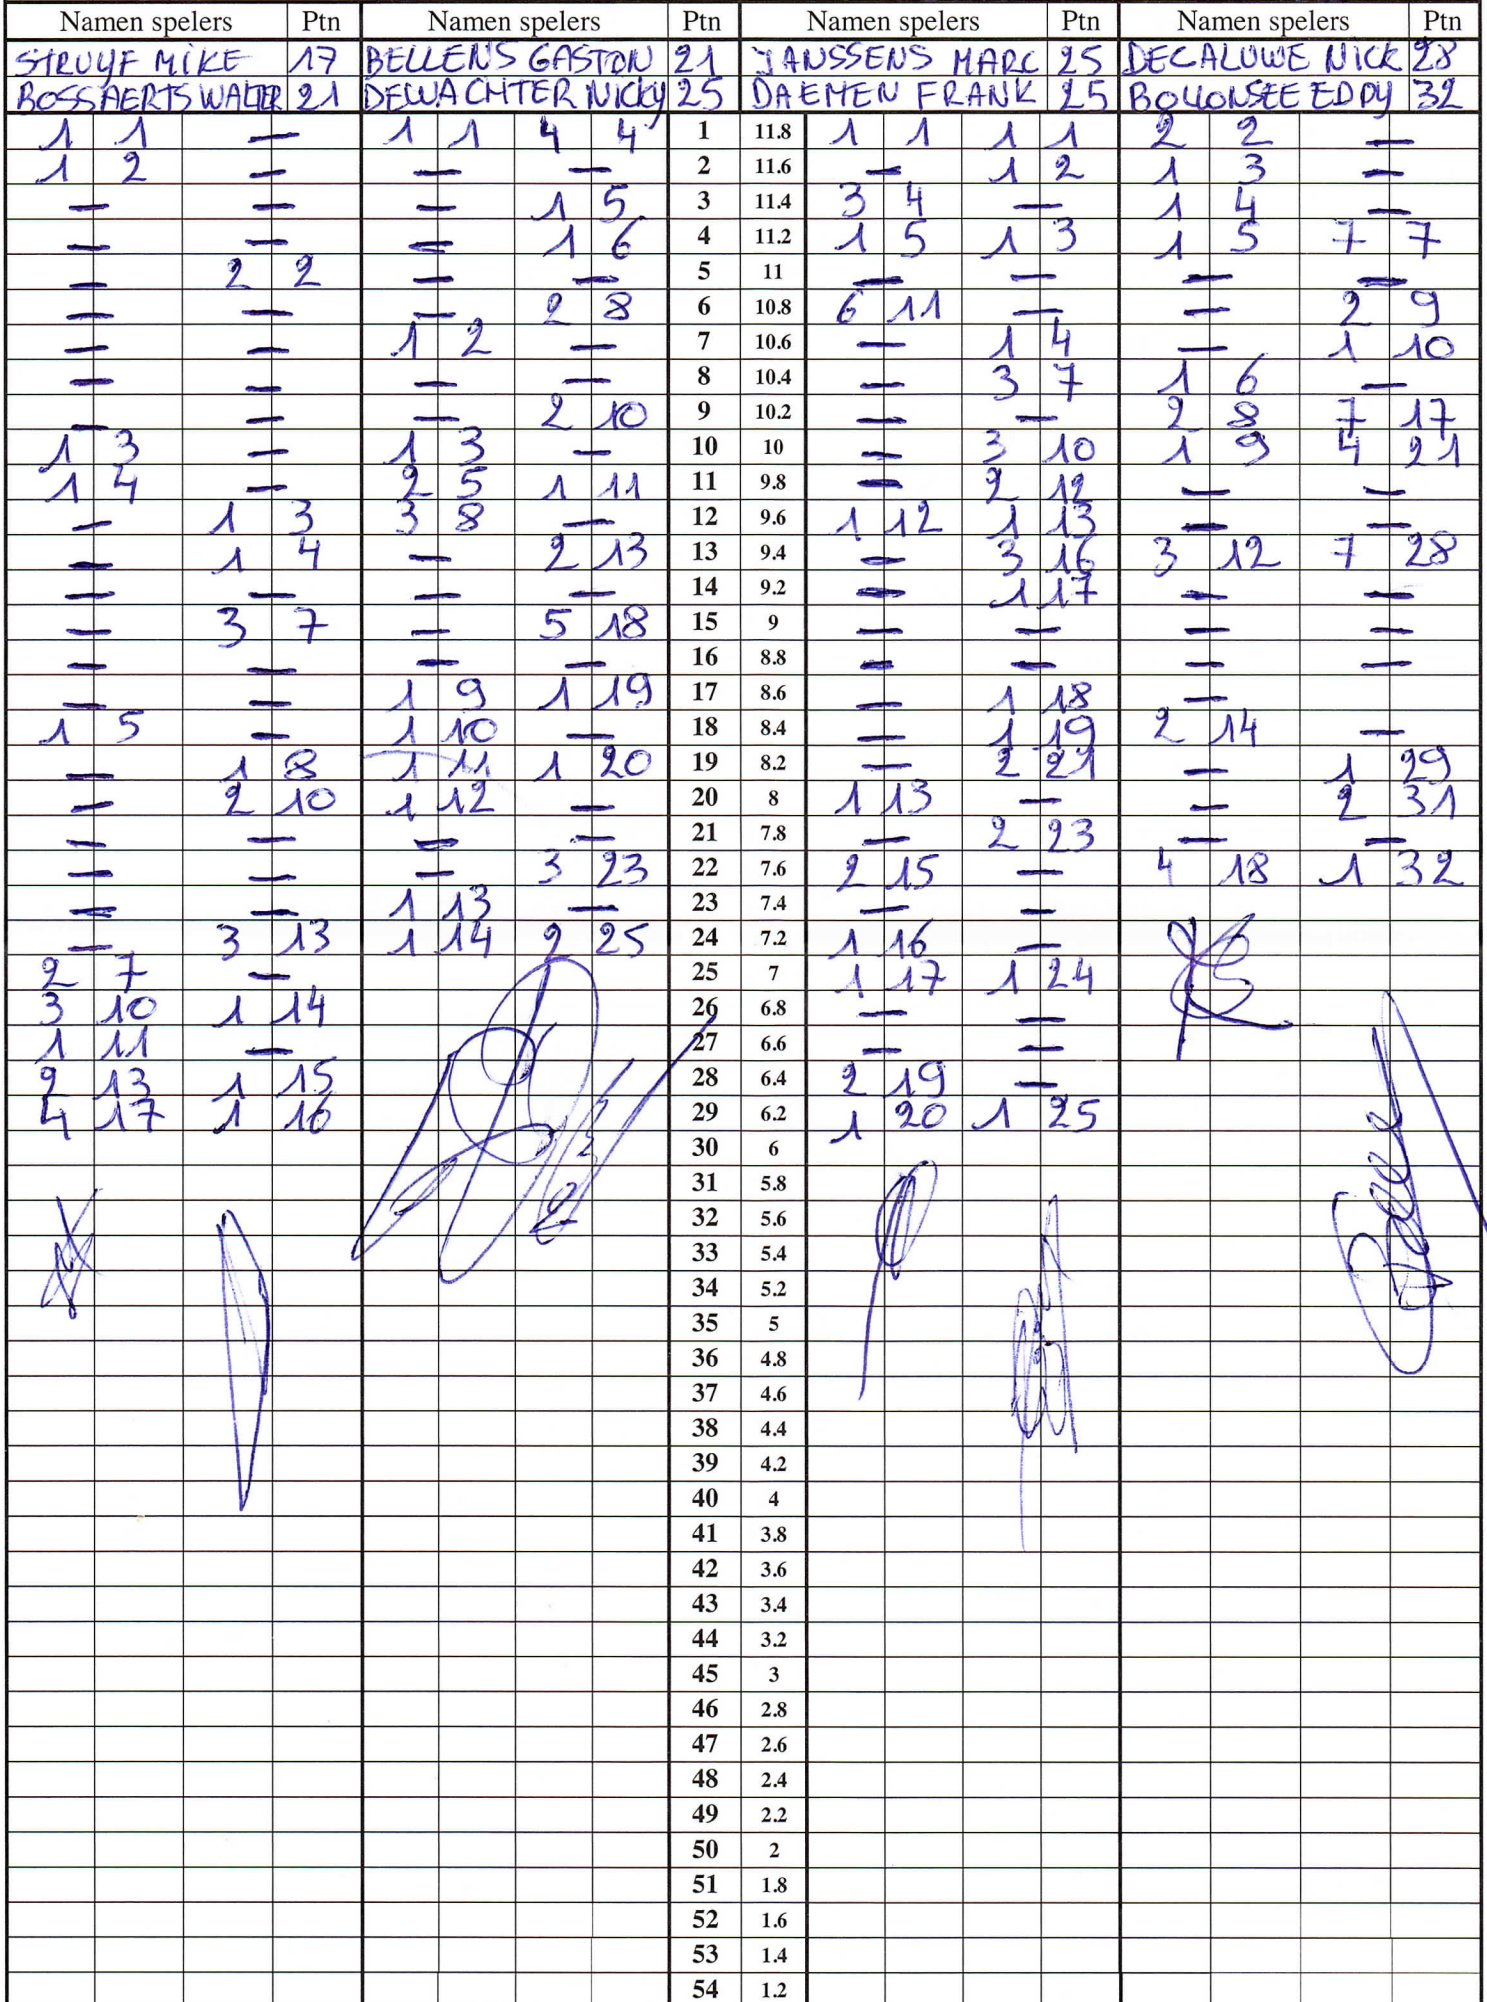 Namen spelers Ptn Namen spelers Ptn Namen spelers Ptn Namen spelers Ptn
STRUYF MIKE 17 BELLENS GASTON 21 JANSSENS MARC 25 DECALUWE NICK 28
BOSSAERTS WALTER 21 DEWACHTER NICKY 25 DAEMEN FRANK 25 BOLLONSEE EDDY 32
1 1 — 1 1 4 4 1 11.8 1 1 1 1 2 2 —
1 2 — — — 2 11.6 — 1 2 1 3 —
— — — 1 5 3 11.4 3 4 — 1 4 —
— — — 1 6 4 11.2 1 5 1 3 1 5 7 7
— 2 2 — — 5 11 — — — —
— — — 2 8 6 10.8 6 11 — — 2 9
— — 1 2 — 7 10.6 — 1 4 — 1 10
— — — — 8 10.4 — 3 7 1 6 —
— — — 2 10 9 10.2 — — 2 8 7 17
1 3 — 1 3 — 10 10 — 3 10 1 9 4 21
1 4 — 2 5 1 11 11 9.8 — 2 12 — —
— 1 3 3 8 — 12 9.6 1 12 1 13 — —
— 1 4 — 2 13 13 9.4 — 3 16 3 12 7 28
— — — — 14 9.2 — 1 17 — —
— 3 7 — 5 18 15 9 — — — —
— — — — 16 8.8 — — — —
— — 1 9 1 19 17 8.6 — 1 18 —
1 5 — 1 10 — 18 8.4 — 1 19 2 14 —
— 1 8 1 11 1 20 19 8.2 — 2 21 — 1 29
— 2 10 1 12 — 20 8 1 13 — — 2 31
— — — — 21 7.8 — 2 23 — —
— — — 3 23 22 7.6 2 15 — 4 18 1 32
— — 1 13 — 23 7.4 — —
— 3 13 1 14 2 25 24 7.2 1 16 —
2 7 — 25 7 1 17 1 24
3 10 1 14 26 6.8 — —
1 11 — 27 6.6 — —
2 13 1 15 28 6.4 2 19 —
4 17 1 16 29 6.2 1 20 1 25
30 6
31 5.8
32 5.6
33 5.4
34 5.2
35 5
36 4.8
37 4.6
38 4.4
39 4.2
40 4
41 3.8
42 3.6
43 3.4
44 3.2
45 3
46 2.8
47 2.6
48 2.4
49 2.2
50 2
51 1.8
52 1.6
53 1.4
54 1.2